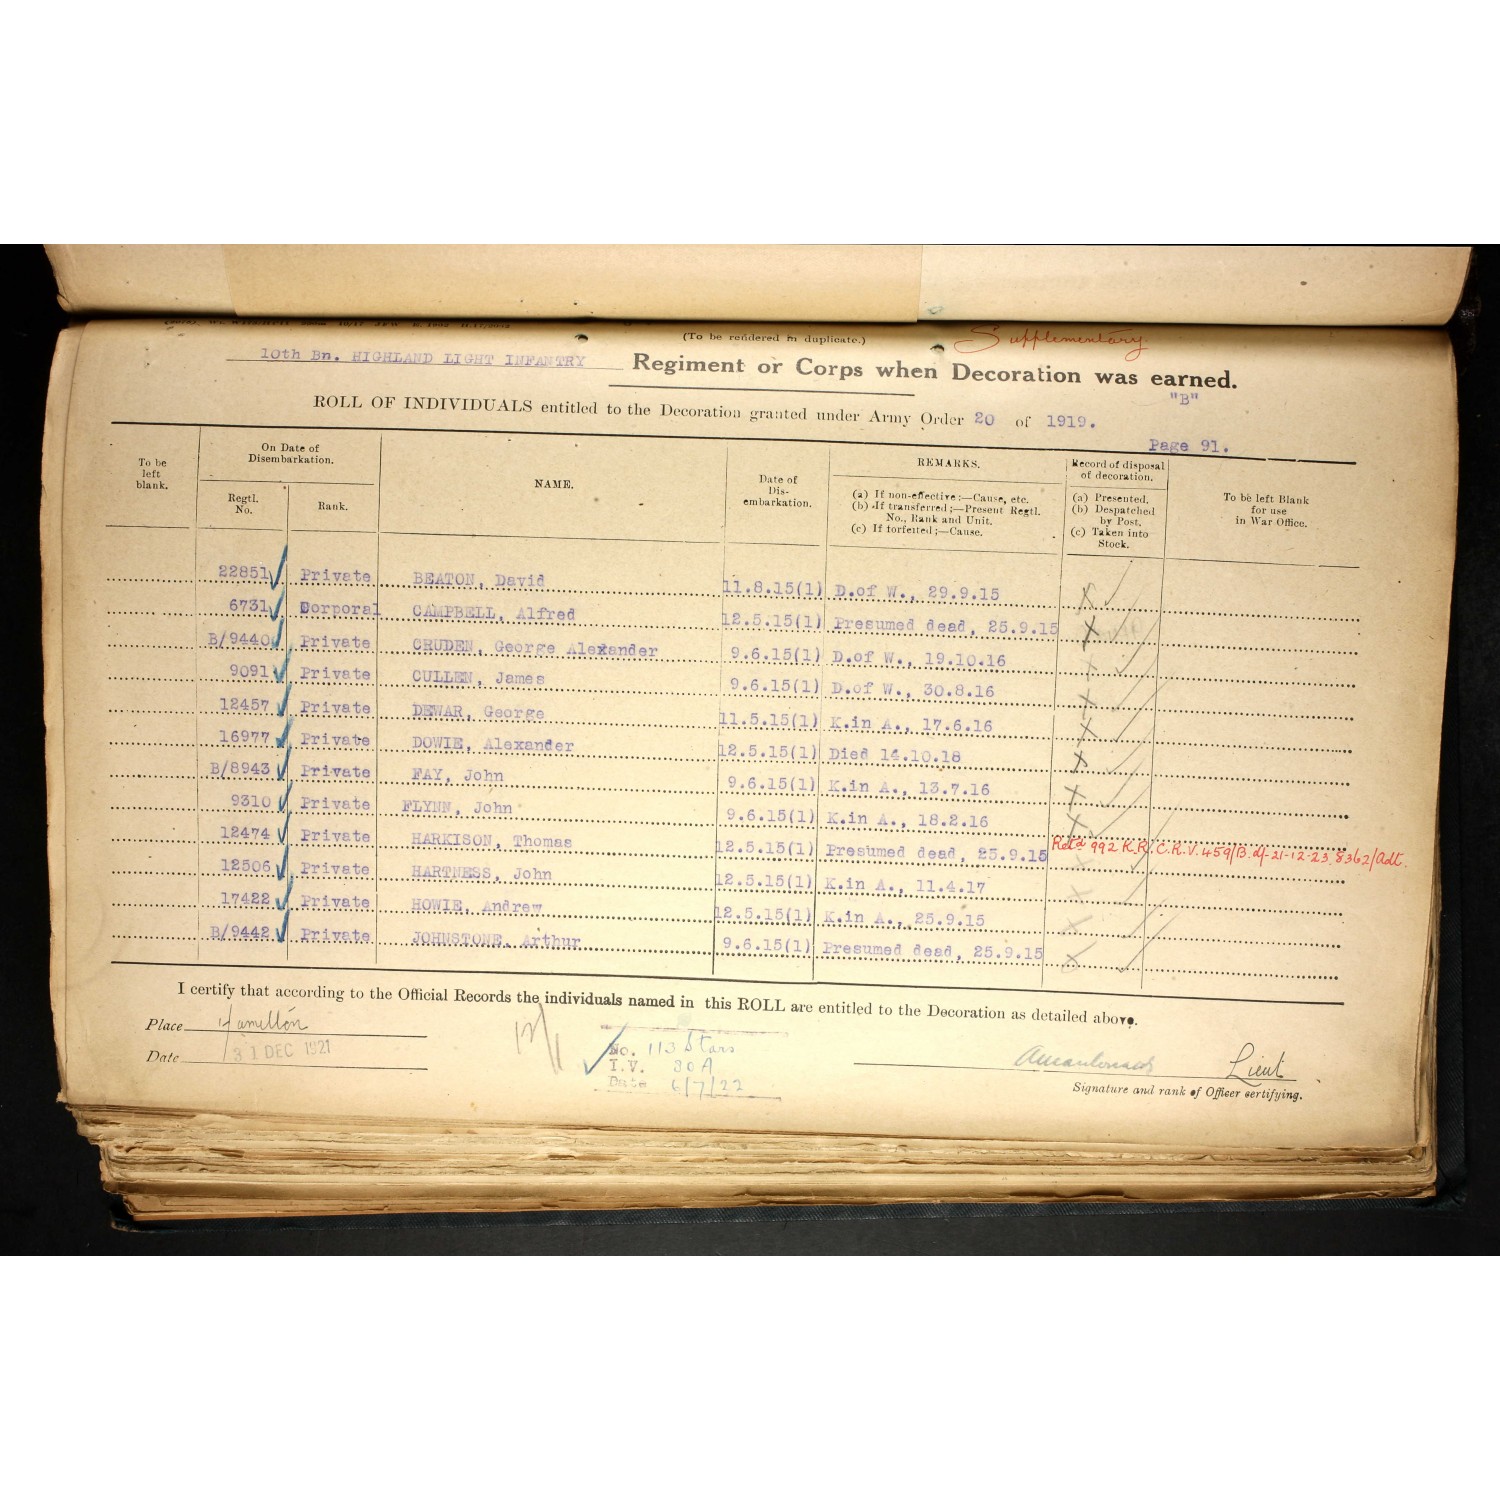 (To be rendered in duplicate.)
Supplementary
10th Bn. HIGHLAND LIGHT INFANTRY Regiment or Corps when Decoration was earned.
"B"
ROLL OF INDIVIDUALS entitled to the Decoration granted under Army Order 20 of 1919.
Page 91.
To be left blank.
On Date of Disembarkation.
Regtl. No.
Rank.
NAME.
Date of Dis-embarkation.
REMARKS.
(a) If non-effective :—Cause, etc.
(b) If transferred ;—Present Regtl. No., Rank and Unit.
(c) If forfeited ;—Cause.
Record of disposal of decoration.
(a) Presented.
(b) Despatched by Post.
(c) Taken into Stock.
To be left Blank for use in War Office.
22851 Private BEATON, David 11.8.15(1) D.of W., 29.9.15 X
6731 Corporal CAMPBELL, Alfred 12.5.15(1) Presumed dead, 25.9.15 X
B/9440 Private CRUDEN, George Alexander 9.6.15(1) D.of W., 19.10.16 X
9091 Private CULLEN, James 9.6.15(1) D.of W., 30.8.16 X
12457 Private DEWAR, George 11.5.15(1) K.in A., 17.6.16 X
16977 Private DOWIE, Alexander 12.5.15(1) Died 14.10.18 X
B/8943 Private FAY, John 9.6.15(1) K.in A., 13.7.16 X
9310 Private FLYNN, John 9.6.15(1) K.in A., 18.2.16 X
12474 Private HARKISON, Thomas 12.5.15(1) Presumed dead, 25.9.15 Retd 992 K.R. C.R.V. 459/B. d/- 21-12-23. 8362/Adt.
12506 Private HARTNESS, John 12.5.15(1) K.in A., 11.4.17 X
17422 Private HOWIE, Andrew 12.5.15(1) K.in A., 25.9.15 X
B/9442 Private JOHNSTONE, Arthur 9.6.15(1) Presumed dead, 25.9.15 X
I certify that according to the Official Records the individuals named in this ROLL are entitled to the Decoration as detailed above.
Place Hamilton
Date 31 DEC 1921
No. 113 Stars
I.V. 80A
Date 6/7/22
Lieut
Signature and rank of Officer certifying.